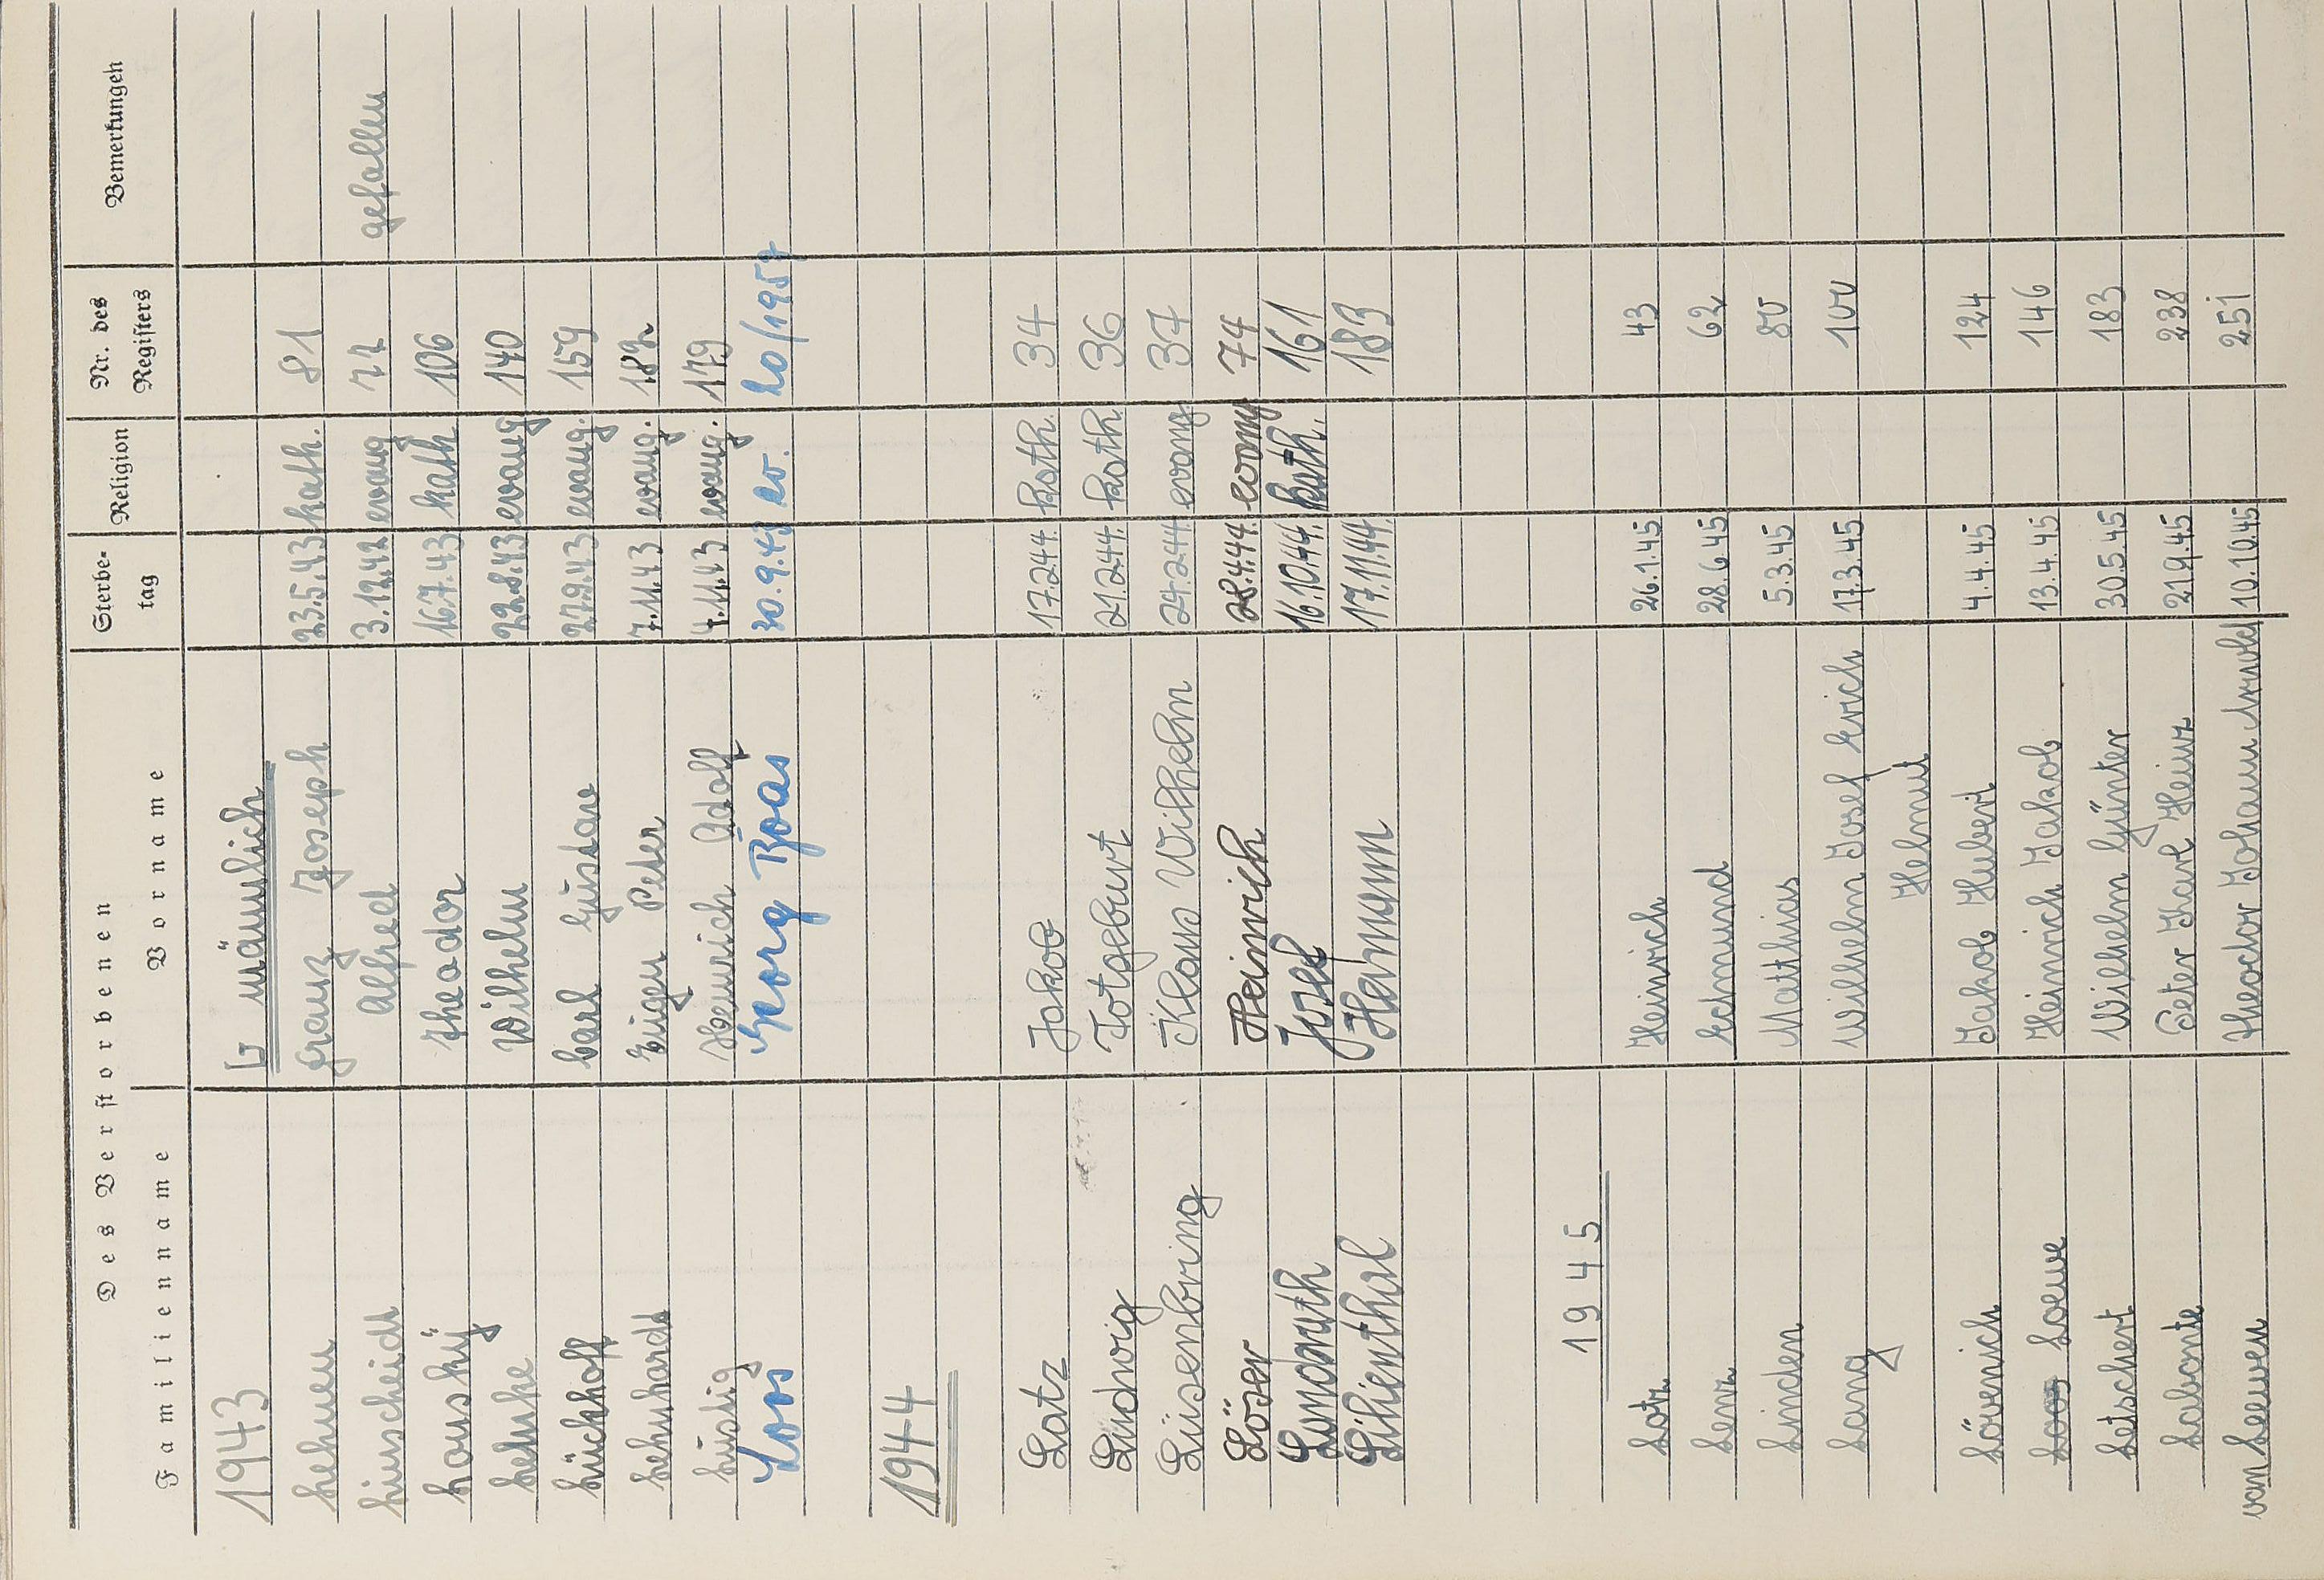 Des Verstorbenen
Familienname Vorname Sterbe-tag Religion Nr. des Registers Bemerkungen
1943 L männlich
Lehnen Franz Joseph 23.5.43 kath. 81
Linscheidt Alfred 3.12.42 evang 72 gefallen
Lousky Theodor 16.7.43 kath 106
Lehnke Wilhelm 22.8.43 evang 140
Lückhoff Carl Gustav 27.9.43 evang. 159
Lehnhardt Eugen Peter 7.11.43 evang. 182
Lustig Heinrich Adolf 4.11.43 evang. 179
Loos Georg Boas 30.9.43 ev. 20/1957
1944
Latz Jakob 17.2.44. Kath. 34
Ludwig Totgeburt 21.2.44. Kath. 36
Lüsenbring Klaus Wilhelm 24.2.44. evang 37
Löser Heinrich 28.4.44. evang 74
Josef 16.10.44. Kath. 161
Lilienthal Hermann 17.11.44. 183
1945
Lotz Heinrich 26.1.45 43
Lenz Edmund 28.6.45 62
Linden Matthias 5.3.45 80
Lang Wilhelm Josef Erich 17.3.45 100
Helmut
Lövenich Jakob Hubert 4.4.45 124
Loos Loewe Heinrich Jakob 13.4.45 146
Letschert Wilhelm Günter 30.5.45 183
Labonte Peter Karl Heinz 21.9.45 238
van Leewen Theodor Johann Arnold 10.10.45 251